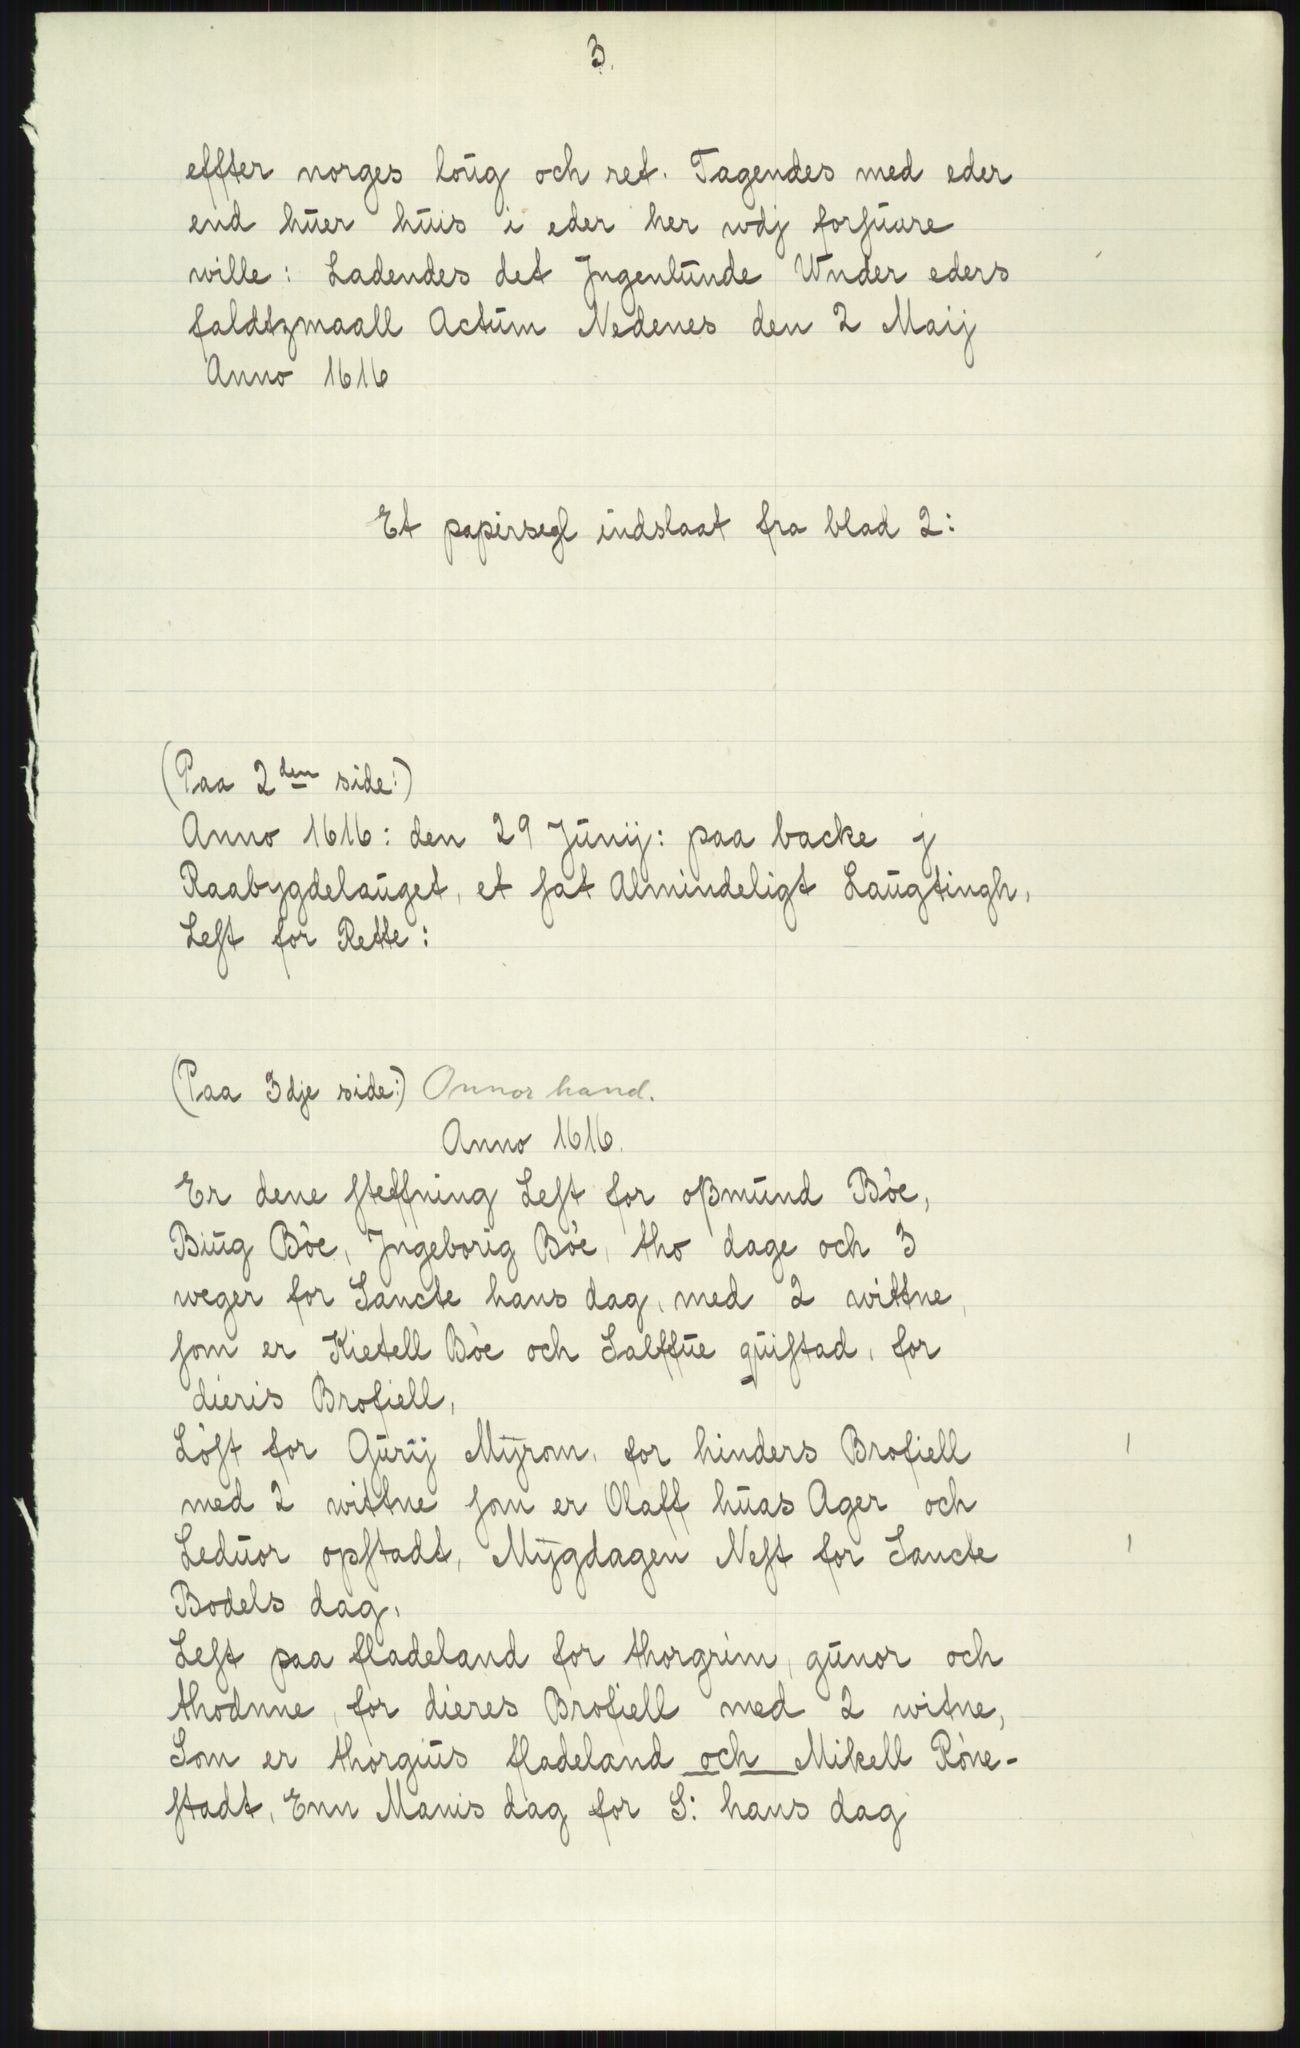 3.
effter norges loūg och ret. Tagendes med eder
end hūer hūis i eder her wdj forsūare
wille: Ladendes det Jngenlūnde Wnder eders
faldtzmaall Actūm Nedenes den 2 Maij
Anno 1616
Et papirsegl indslaat fra blad 2:
(Paa 2den side:)
Anno 1616: den 29 Jūnij: paa backe j
Raabygdelaūget, et sat Almindeligt Laūgtingh,
Lest for Rette:
(Paa 3dje side:) Onnor hand.
Anno 1616.
Er dene steffning Lest for oßmūnd Bòe,
Biūg Bòe, Jngeborig Bòe, tho dage och 3
weger for Sancte hans dag, med 2 wittne,
som er Kietell Bòe och Salffūe qūistad, for
dieris Brofiell,
Lòst for Gūrij Mÿrom, for hinders Brofiell
med 2 wittne som er Olaff hūas Ager och
Ledūor opstadt, Mÿgdagen Nest for Sancte
Bodels dag,
Lest paa fladeland for thorgrim, gūnor och
thodnne, for dieres Brofiell med 2 witne,
Som er thorgiūs fladeland och Mikell Ròne-
stadt, Enn Manis dag for S: hans dag